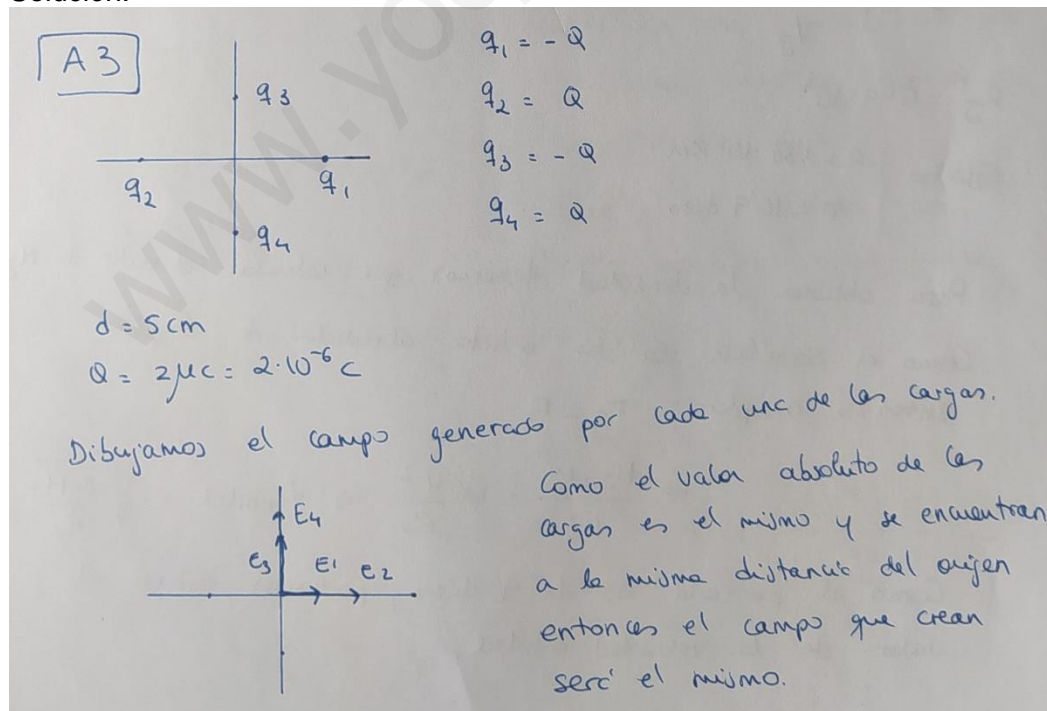 Solución:
A3
q1 = -Q
q3
q2 = Q
q3 = -Q
q2
q1
q4 = Q
q4
d = 5cm
Q = 2μc = 2·10^-6 C
Dibujamos el campo generado por cada una de las cargas.
Como el valor absoluto de las
cargas es el mismo y se encuentran
a la misma distancia del origen
entonces el campo que crean
será el mismo.
E4
E3
E1
E2
www.yo